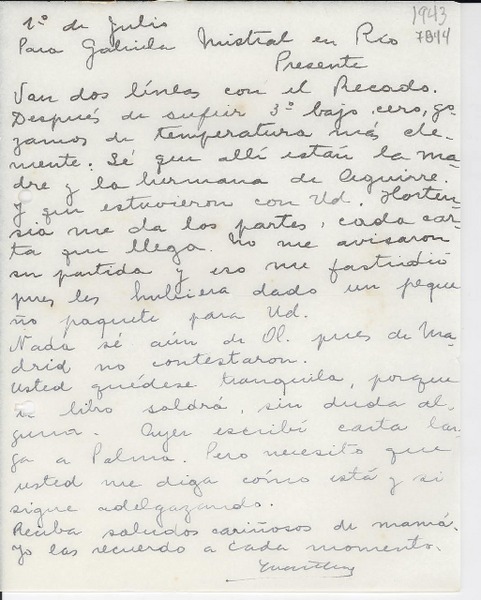 1º de Julio
1943
7844
Para Gabriela Mistral en Río
Presente
Van dos líneas con el Recado.
Después de sufrir 3º bajo cero, go-
zamos de temperatura más cle-
mente. Sé que allí están la ma-
dre y la hermana de Aguirre.
Y que estuvieron con Ud. Horten-
sia me da los partes, cada car-
ta que llega. No me avisaron
su partida y eso me fastidió
pues les hubiera dado un peque
ño paquete para Ud.
Nada sé aún de Ol. pues de Ma-
drid no contestaron.
Usted quédese tranquila, porque
libro saldrá, sin duda al-
guna. Ayer escribí carta lar-
ga a Palma. Pero necesito que
usted me diga cómo está y si
sigue adelgazando.
Reciba saludos cariñosos de mamá.
Yo las recuerdo a cada momento.